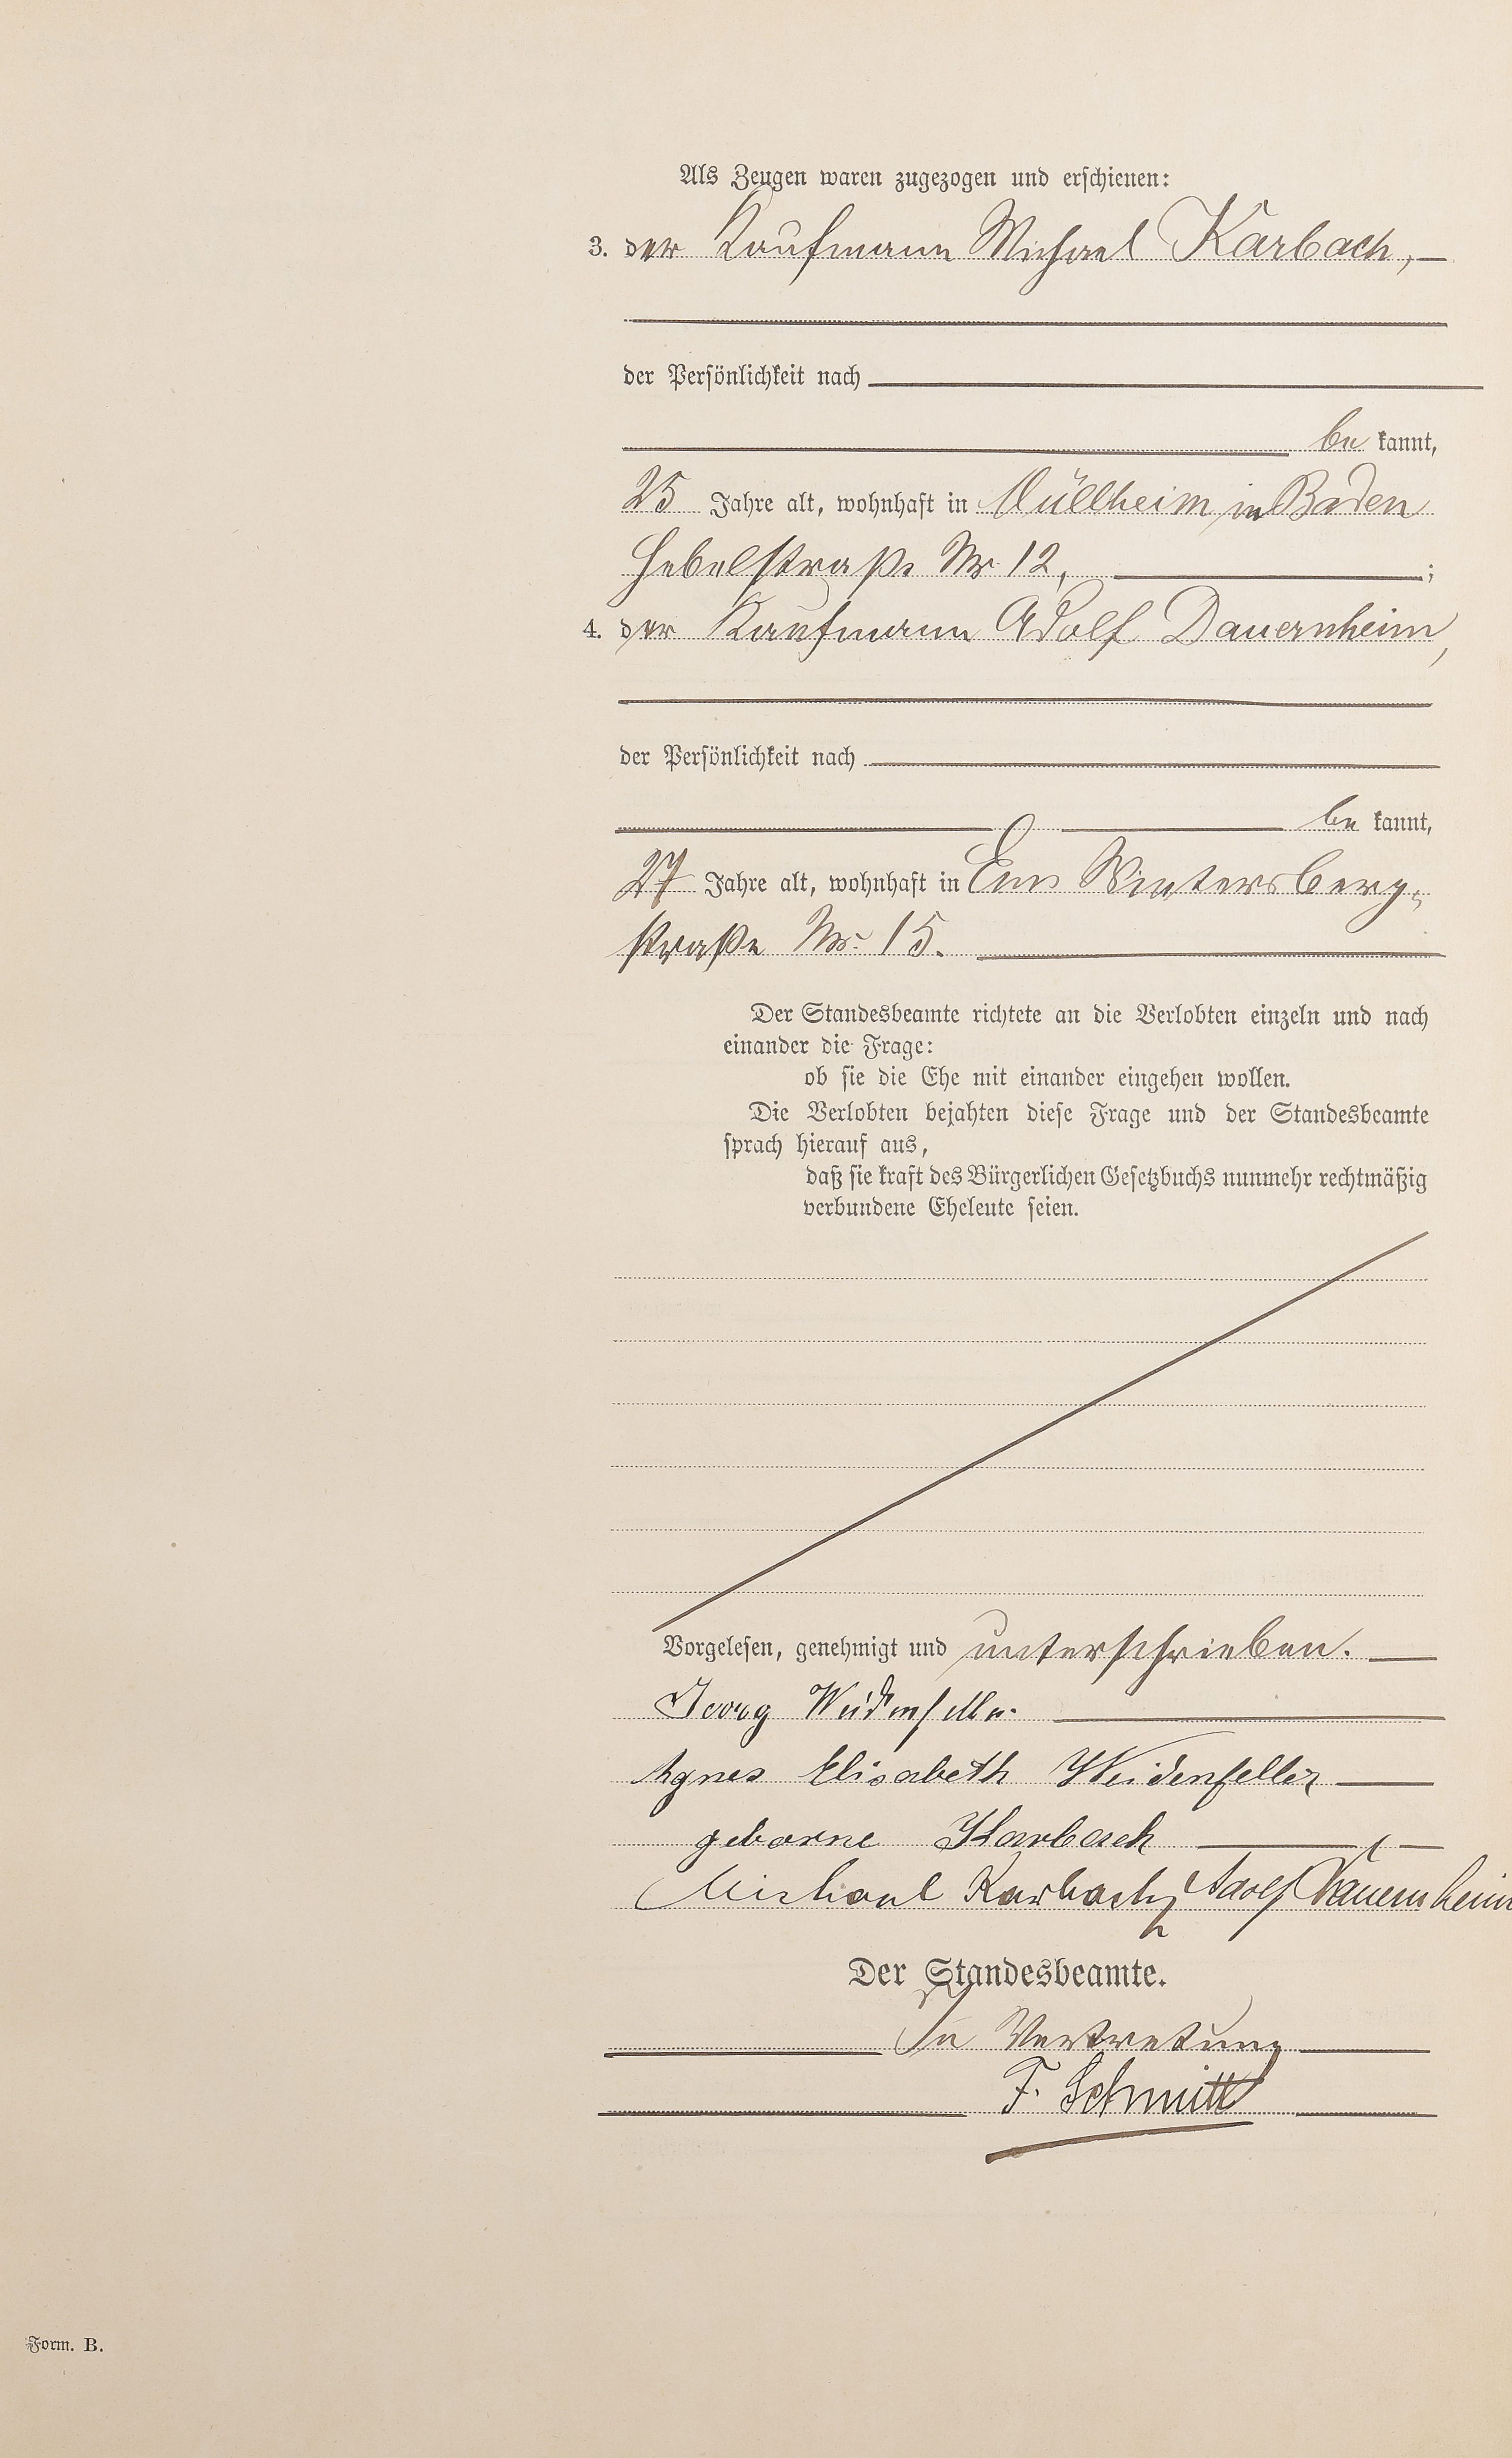 Als Zeugen waren zugezogen und erschienen:
3. der Kaufmann Michael Karbach,
der Persönlichkeit nach
be kannt,
25 Jahre alt, wohnhaft in Müllheim in Baden
Hebelstraße Nr 12, ;
4. der Kaufmann Adolf Dauernheim,
der Persönlichkeit nach
be kannt,
27 Jahre alt, wohnhaft in Ems Wintersberg-
straße Nr. 15.
Der Standesbeamte richtete an die Verlobten einzeln und nach
einander die Frage:
ob sie die Ehe mit einander eingehen wollen.
Die Verlobten bejahten diese Frage und der Standesbeamte
sprach hierauf aus,
daß sie kraft des Bürgerlichen Gesetzbuchs nunmehr rechtmäßig
verbundene Eheleute seien.
Vorgelesen, genehmigt und unterschrieben.
Georg Weidenfeller
Agnes Elisabeth Weidenfeller
geborne Karbach
Michael Karbach, Adolf Dauernheim
Der Standesbeamte.
In Vertretung
F. Schmitt
Form. B.